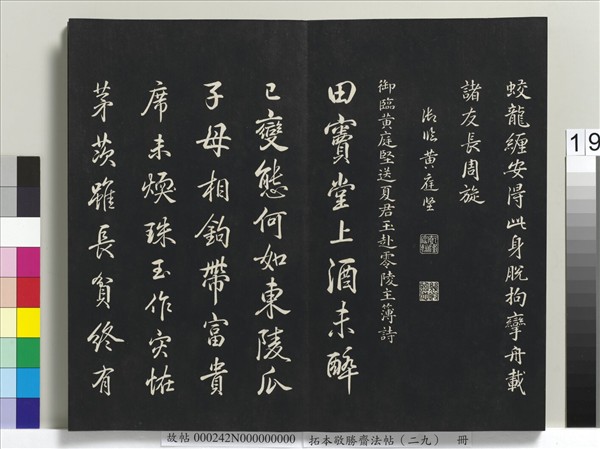 蛟龍纏安得此身脫拘攣舟載
諸友長周旋
御臨黃庭堅
御臨黃庭堅送夏君玉赴零陵主薄詩
田竇堂上酒未醉
已變態何如東陵瓜
子母相鈎帶富貴
席未煖珠玉作災怪
茅茨雖長貧終有
19
故帖 000242N000000000 拓本敬勝齋法帖（二九） 冊